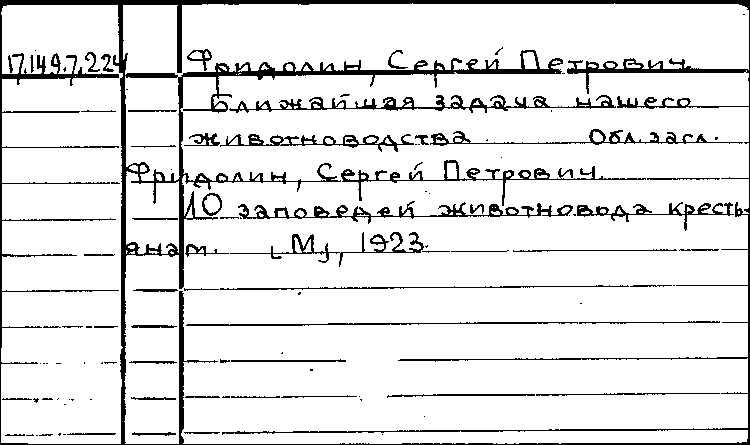 17.149.7.224 Фридолин, Сергей Петрович.
Ближайшая задача нашего
животноводства. Обл. загл.
Фридолин, Сергей Петрович.
10 заповедей животновода кресть-
янам. [М], 1923.